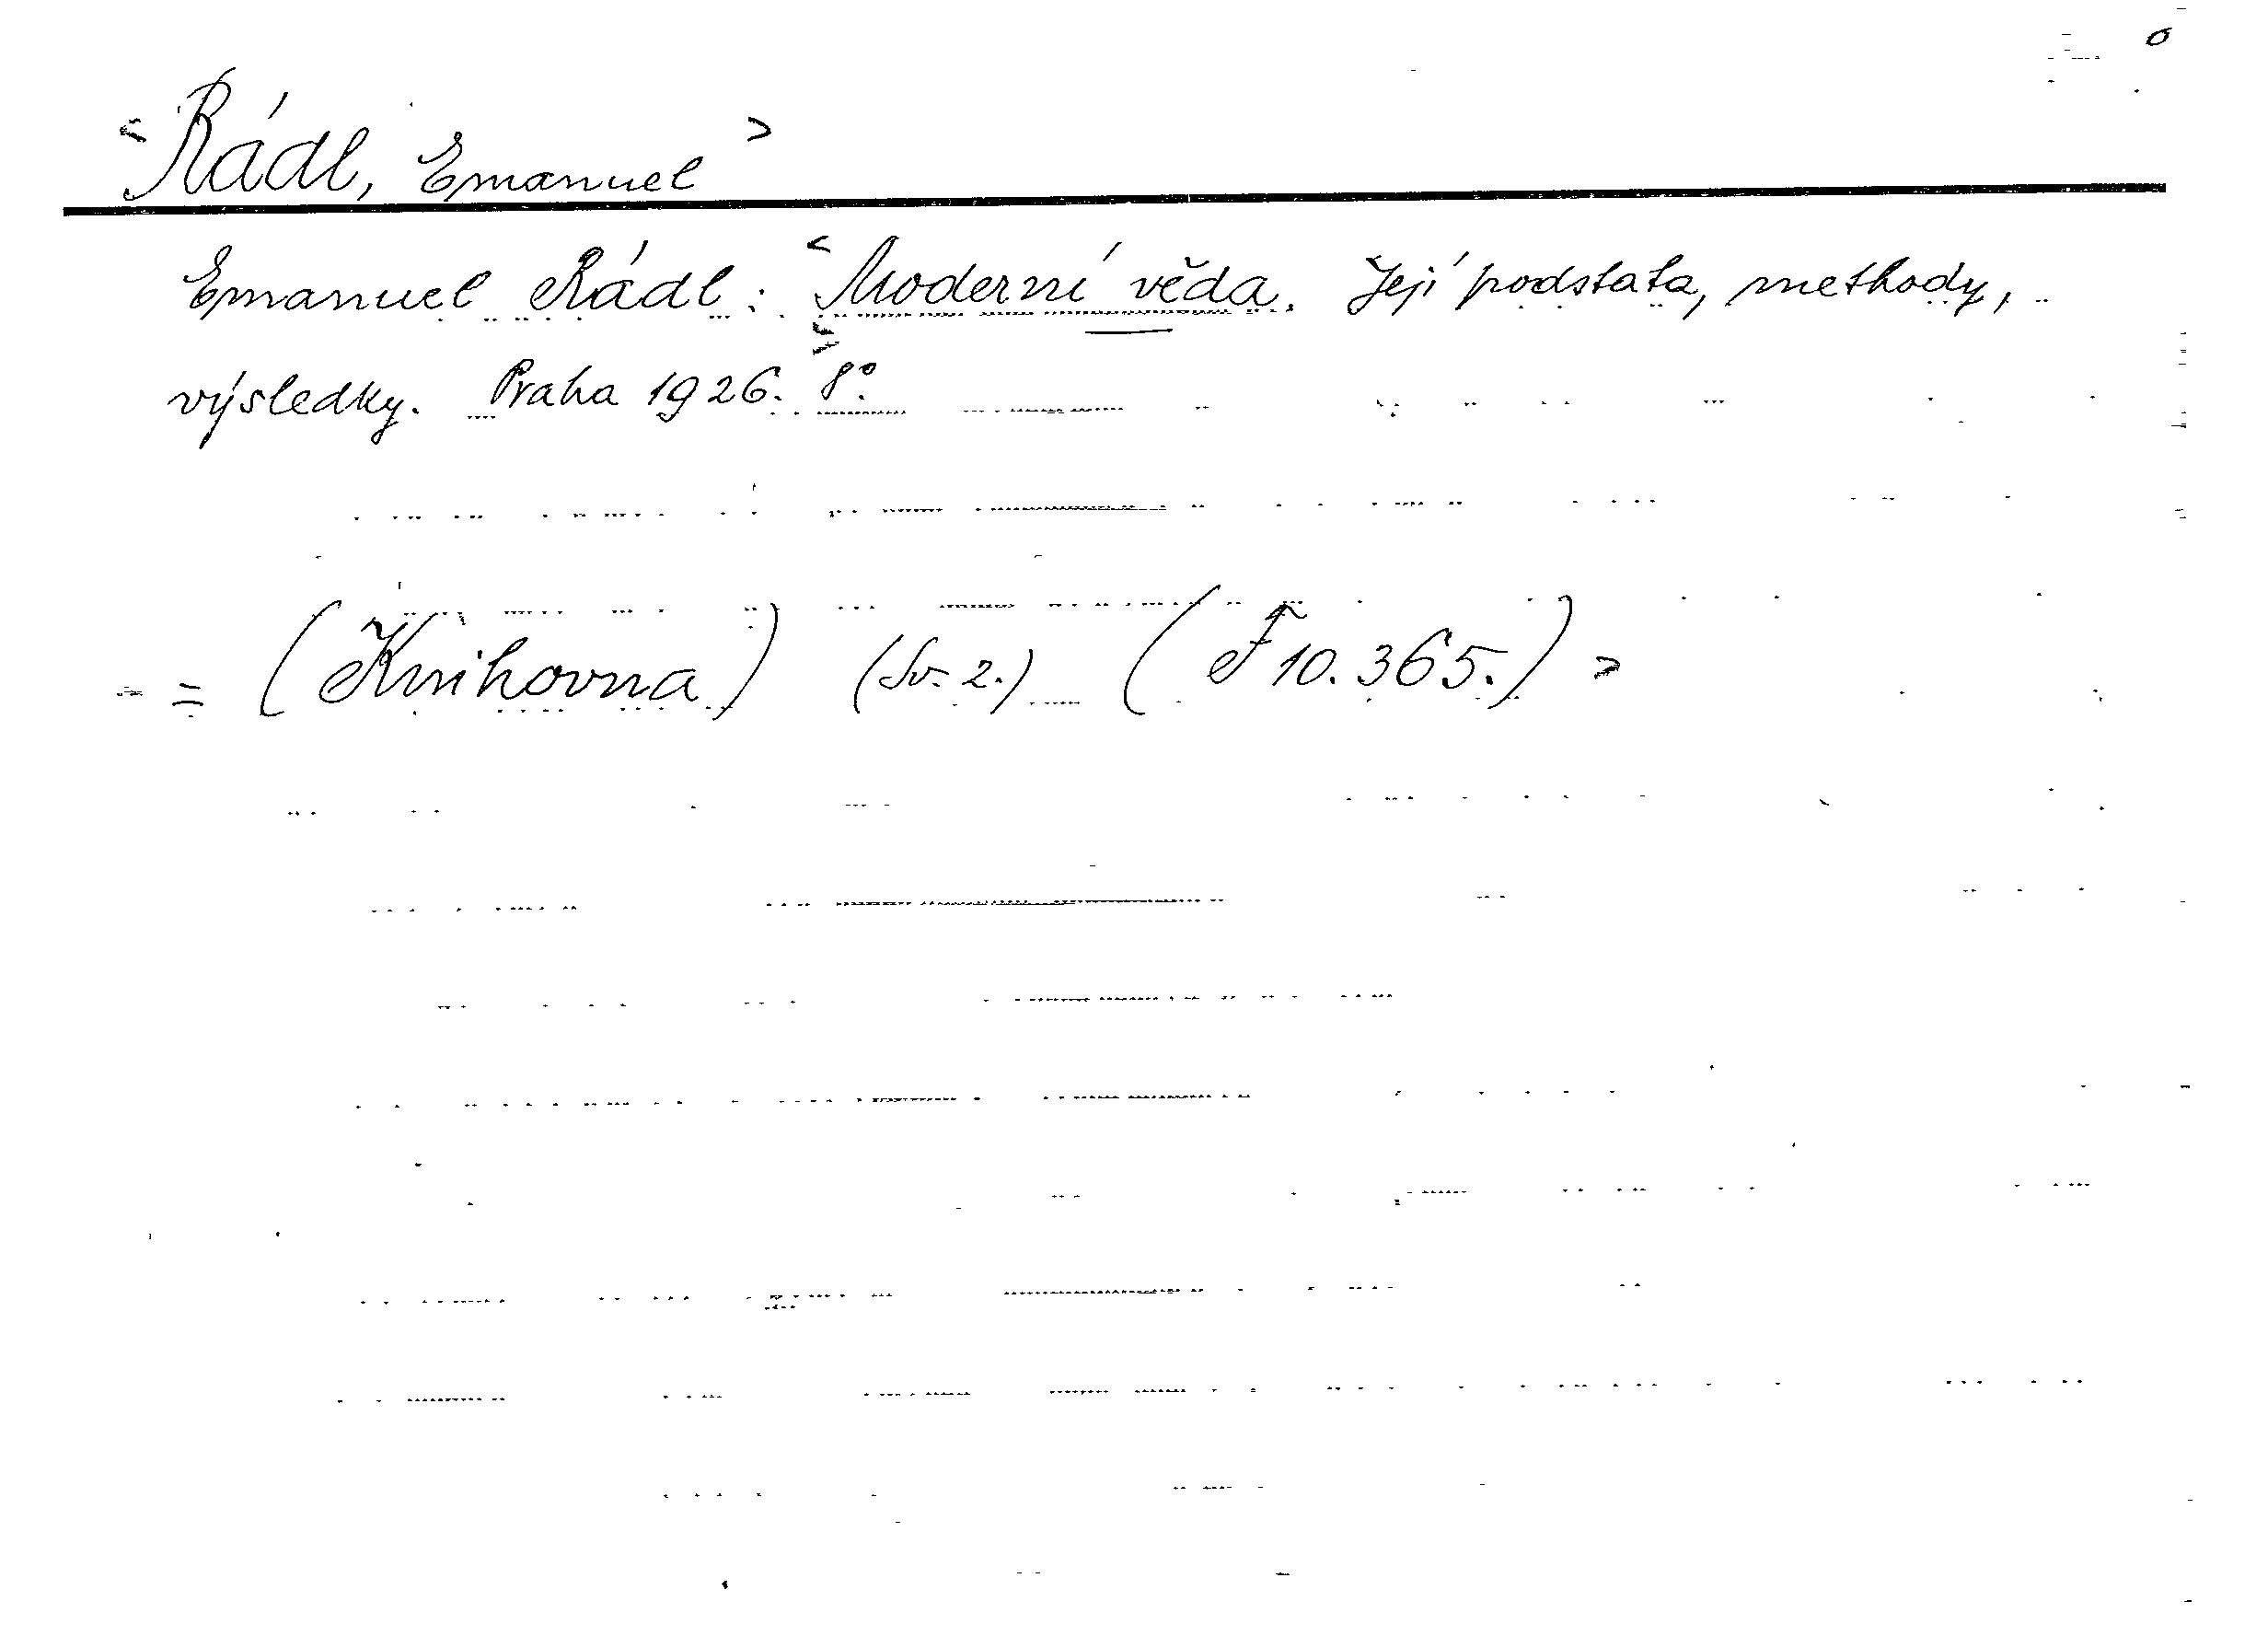 <Rádl, Emanuel>
Emanuel Rádl: <Moderní věda. Její podstata, methody,
výsledky. Praha 1926. 8°.
= (Knihovna) (Sv. 2.) (F 10.365.) >